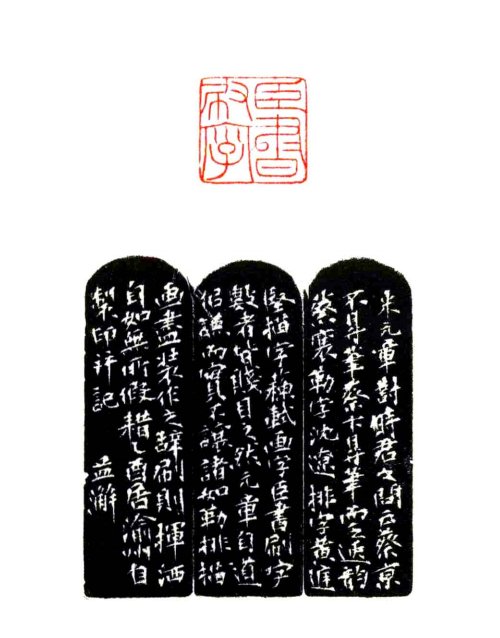 臣書
刷字
米元章對時君之問云蔡京
不得筆蔡卞得筆而乏逸韻
蔡襄勒字沈遼排字黃庭
堅描字蘇軾画字臣書刷字
數者皆賤目之然元章自道
佀謙而實不謙諸如勒排描
画盡裝作之辭刷則揮洒
自如無所假耤乙酉居渝州自
製印并記